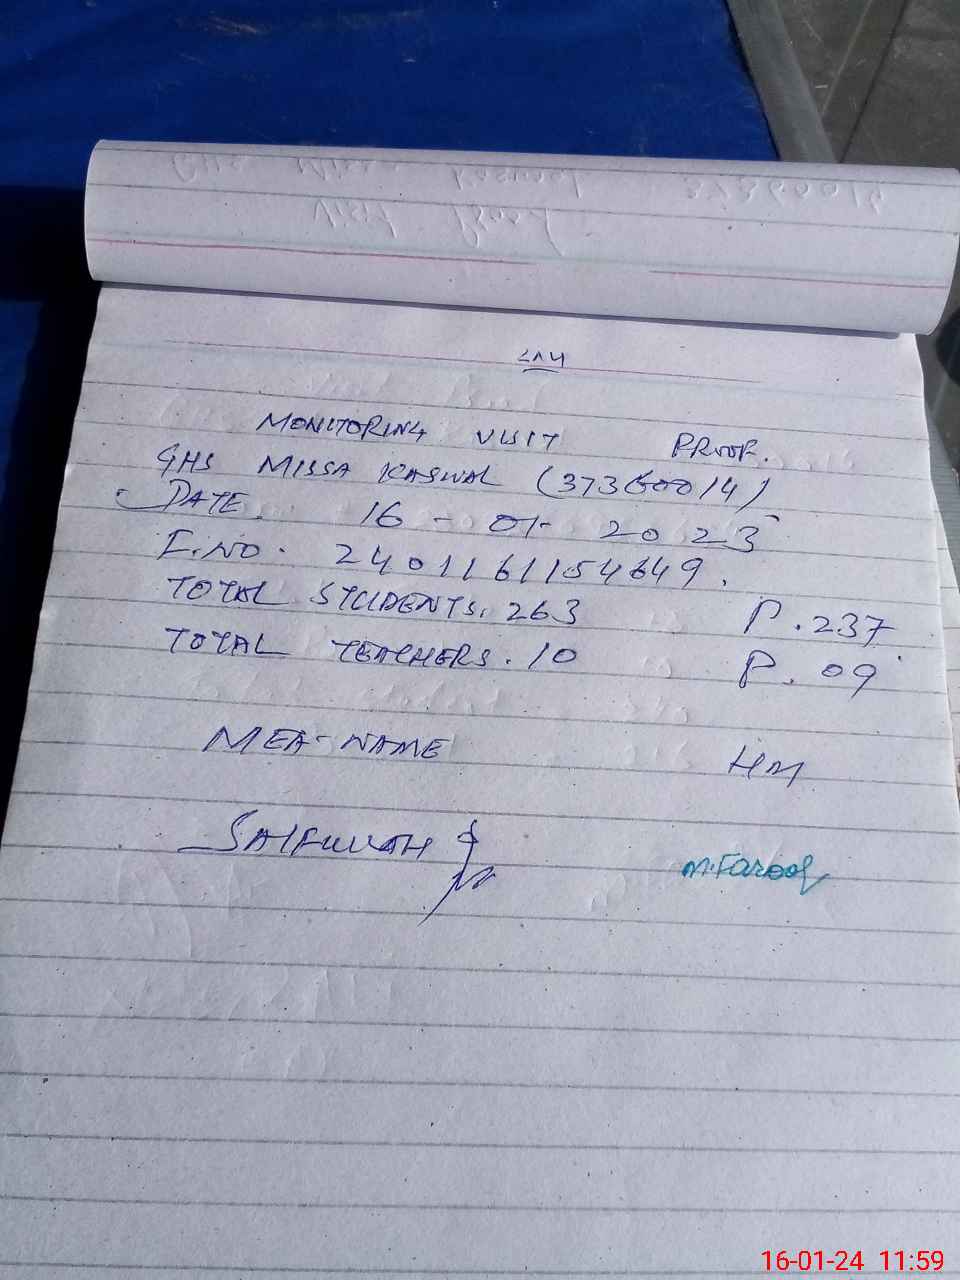 MONITORING VISIT PROOF.
GHS MISSA KASWAL (37360014)
DATE. 16-01-2023
F.NO. 2401161154649.
TOTAL STUDENTS. 263 P.237
TOTAL TEACHERS. 10 P.09
MEA-NAME HM
SAIFULLAH M.Farooq
16-01-24 11:59